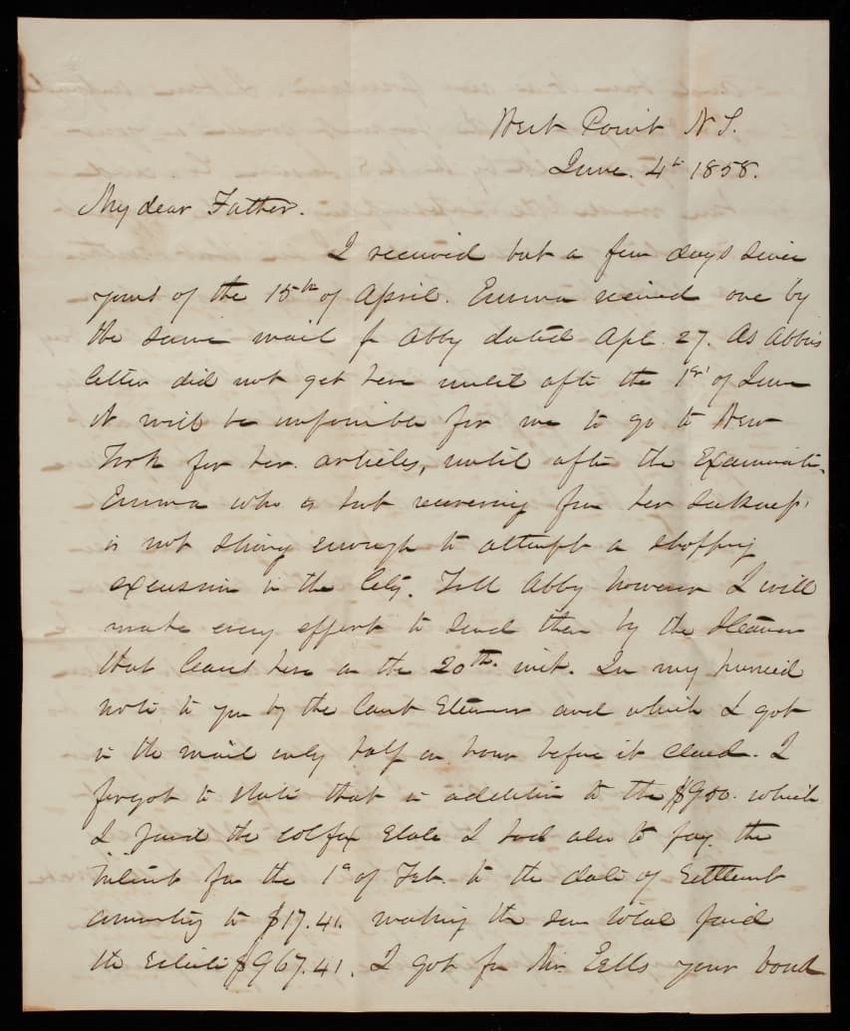 West Point N.Y.
June. 4th 1858.
My dear Father.
I received but a few days since
yours of the 15th of April. Emma received one by
the same mail fr Abby dated Apl. 27. As Abbie's
letter did not get here until after the 1st of June
it will be impossible for me to go to New
York for her articles, until after the Examinatin.
Emma who is but recovering from her sickness
is not strong enough to attempt a shopping
excursion in the City. Tell Abby however I will
make every effort to send them by the Steamer
that leaves here on the 20th inst. In my hurried
note to you by the last Steamer and which I got
in the mail only half an hour before it closed. I
forgot to state that in addition to the $950. which
I paid the Colfax Estate I had also to pay the
Interest for the 1st of Feb. to the date of Settlement
amounting to $17.41. making the sum total paid
the Estate $967.41. I got fr Mr Eells your bond